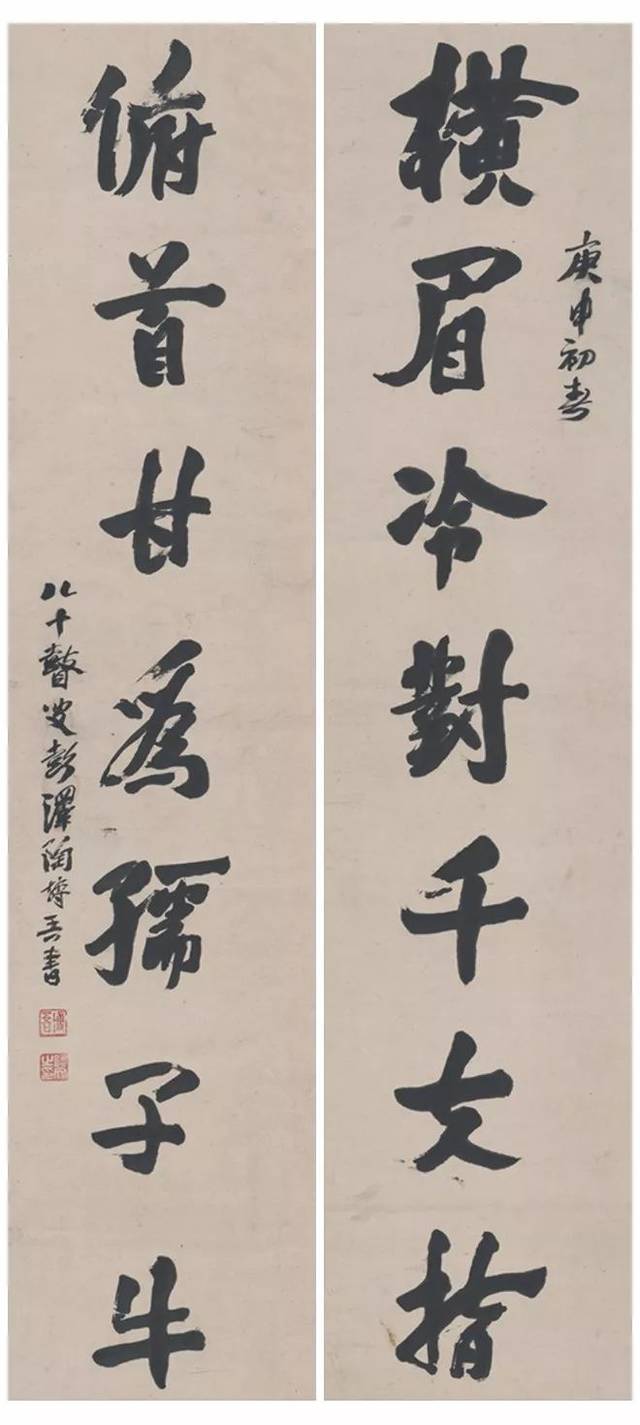 庚申初春
横眉冷對千夫指
俯首甘為孺子牛
八十瞽叟彭澤陶博吾書